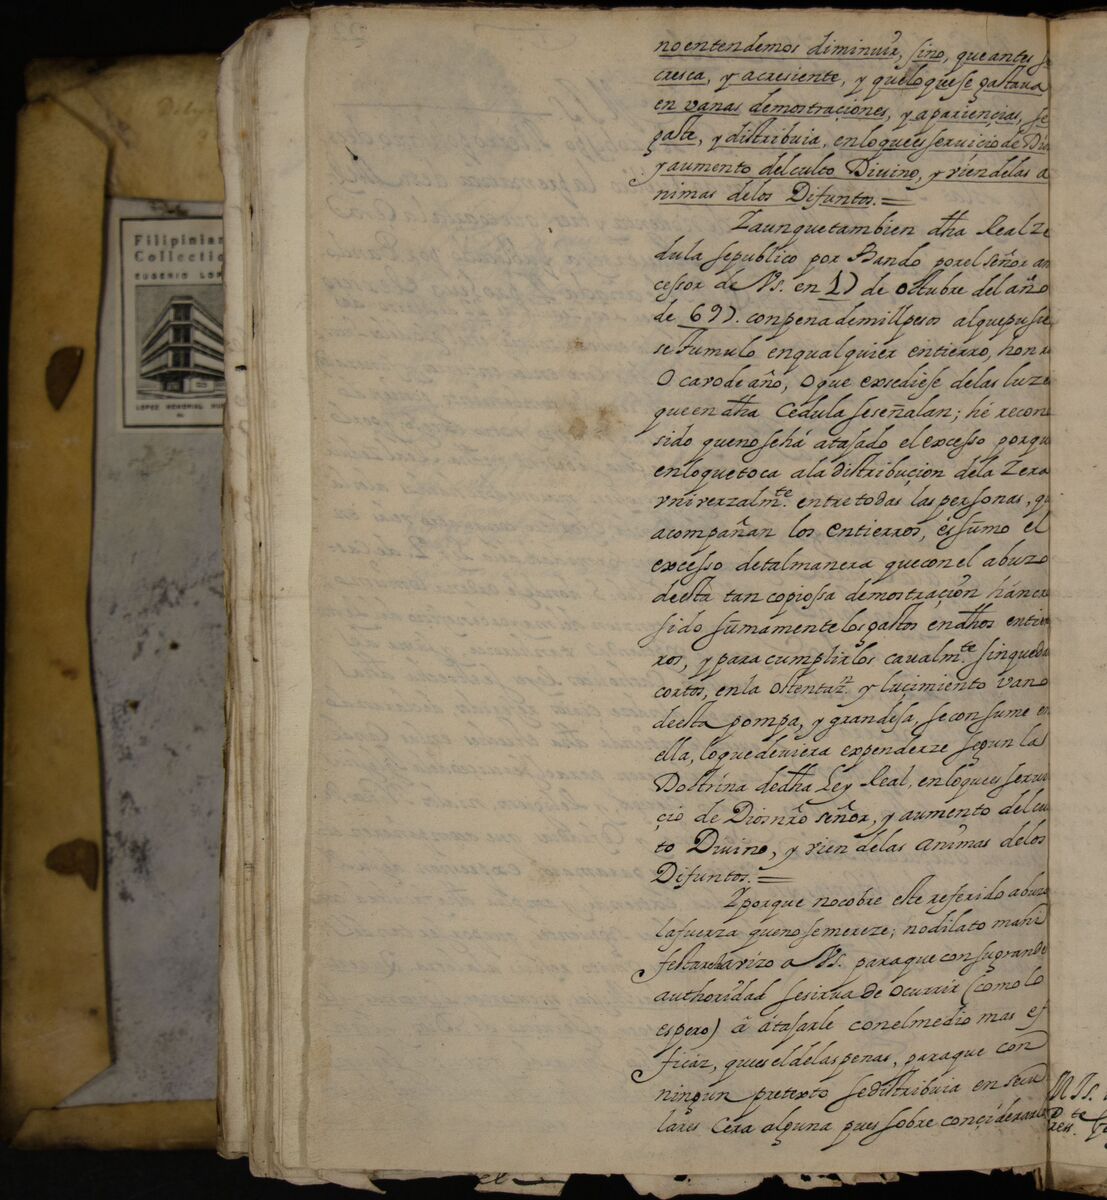 Filipinian
Collectio
EUGENIO LOP
LOPEZ MEMORIAL MUS
no entendemos diminuir, sino, que antes s
cresca, y acresiente, y quelo que se gastava
en vanas demostraciones, y apariencias, se
gaste, y distribuia, enloquees servicio de Dio
y aumento del culto Divino, y vien delas a
nimas delos Difuntos. =
Y aunque tambien dha Real Ze
dula sepublico por Bando por el señor an
cessor de Vs. en 17 de octubre del año
de 697. con pena de mill pesos al que pusie
se tumulo en qualquier entierro, honra
o cavo de año, o que exsediese de las luze
que en dha Cedula se señalan; hé recono
sido que no sehá atajado el excesso porque
enloque toca ala distribucion dela Zera
vniverzalmte. entre todas las personas, qu
acompañan los entierros, es sumo el
excesso de tal manera que con el abuzo
de esta tan copiossa demostracion hán cre
sido sumamente los gastos en dhos entier
ros, y para cumplirlos cavalmte. sin queda
cortos, en la ostentazn. y lucimiento vano
de esta pompa, y grandesa, se consume en
ella, lo que deviera expenderze segun la
Doctrina de dha Ley Real, en loquees servi
cio de Dios nro señor, y aumento del cu
to Divino, y vien delas animas delos
Difuntos. =
Y porque no cobre este referido abuzo
la fuerza que no se mereze; no dilato mani
festarelavizo a Vs. para que con su grande
authoridad se sirva de ocurrir (como lo
espero) á átajarle con el medio mas ef
ficaz, que es el de las penas, para que con
ningun pretexto se distribuia en secu
lares cera alguna pues sobre conciderarle